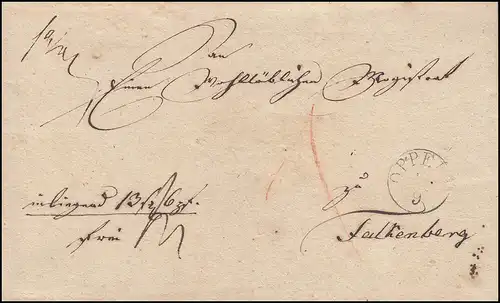 an
Einen Wohllöblichen Magistrat
OPPEL
9
zu
Falkenberg
inliegend 13
frei